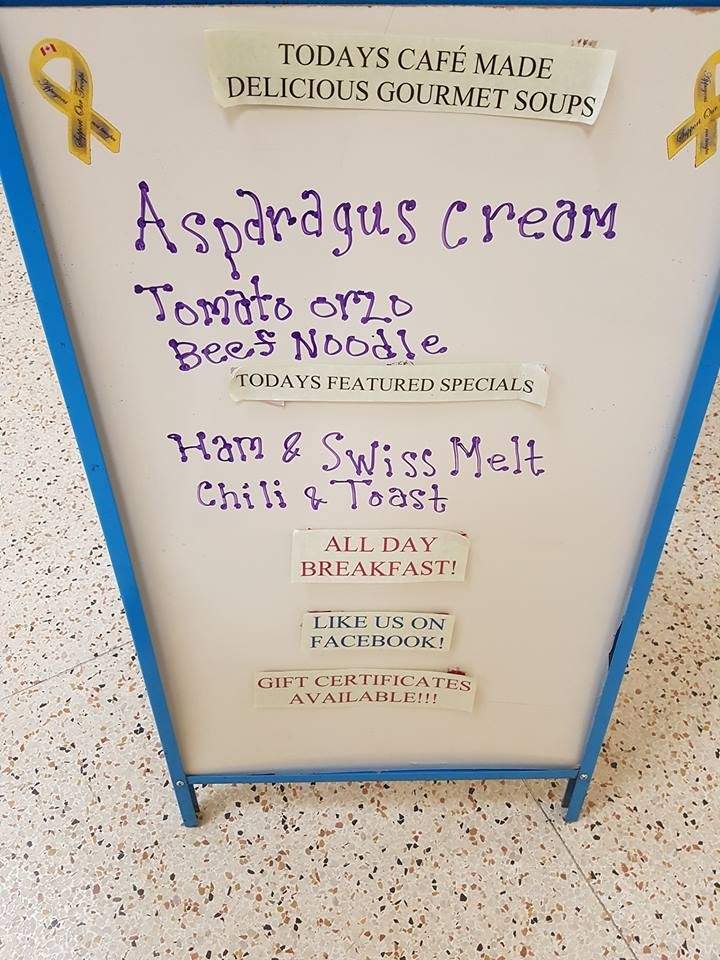 TODAYS CAFÉ MADE
DELICIOUS GOURMET SOUPS
Support Our Troops
Support Our
Asparagus Cream
Tomato orzo
Beef Noodle
TODAYS FEATURED SPECIALS
Ham & Swiss Melt
Chili & Toast
ALL DAY
BREAKFAST!
LIKE US ON
FACEBOOK!
GIFT CERTIFICATES
AVAILABLE!!!